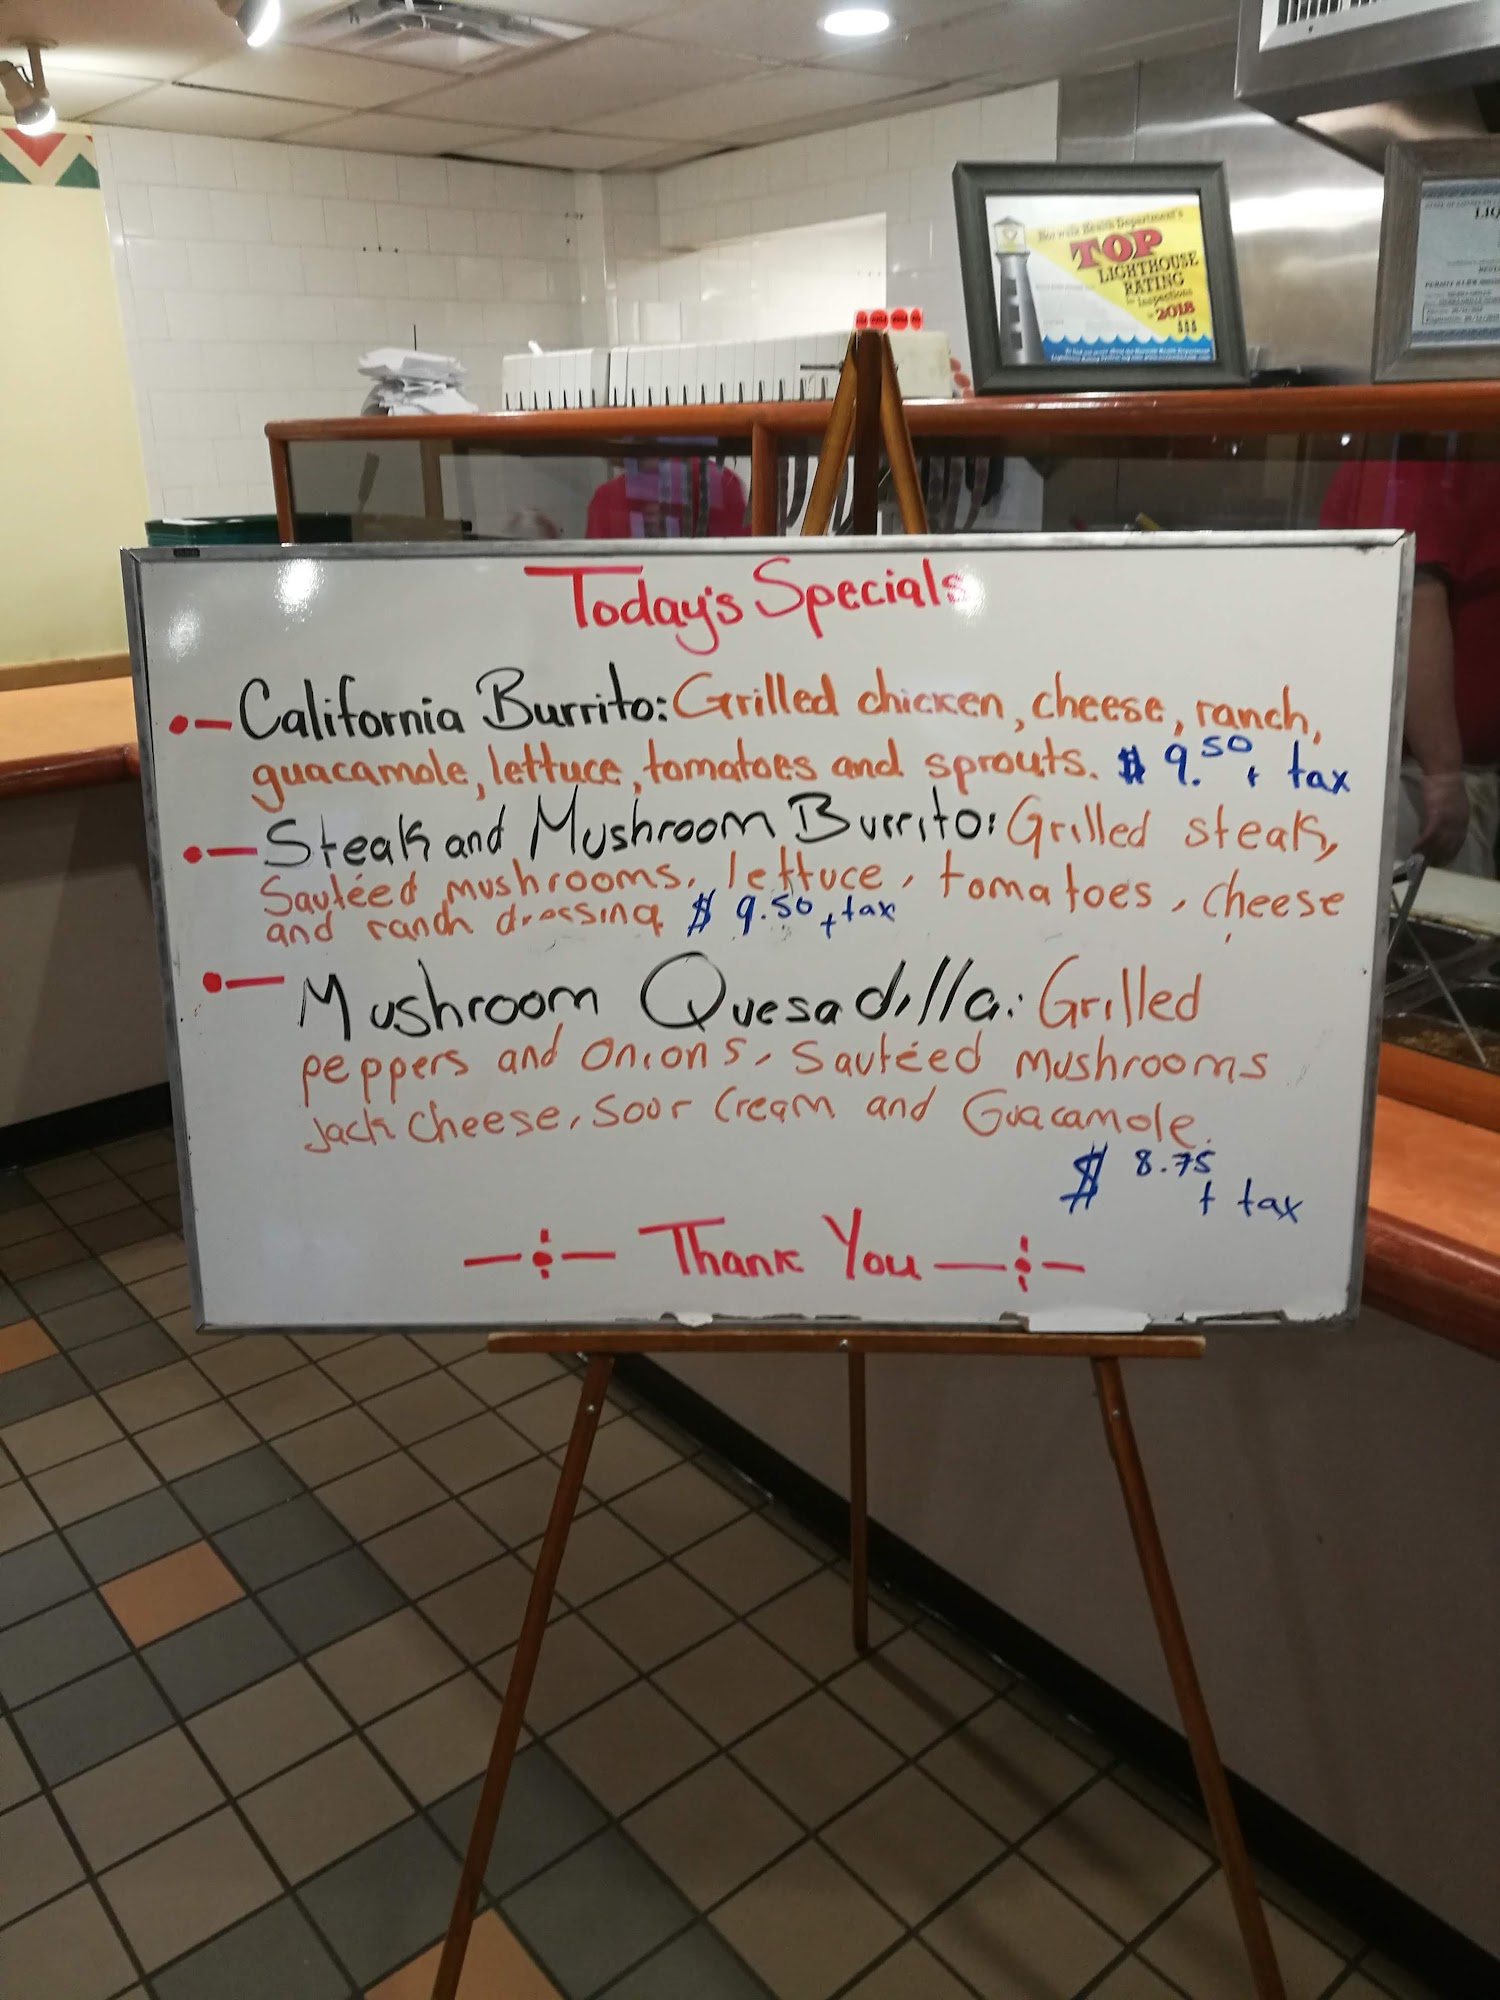 Norwalk Health Department's
TOP
LIGHTHOUSE
RATING
for Inspections
in 2018
LIQ
Today's Specials
California Burrito: Grilled chicken, cheese, ranch,
guacamole, lettuce, tomatoes and sprouts. $ 9.50 + tax
Steak and Mushroom Burrito: Grilled steak,
Sautéed mushrooms, lettuce, tomatoes, cheese
and ranch dressing $ 9.50 + tax
Mushroom Quesadilla: Grilled
peppers and onions, Sautéed mushrooms
Jack cheese, Sour Cream and Guacamole.
$ 8.75
+ tax
Thank You